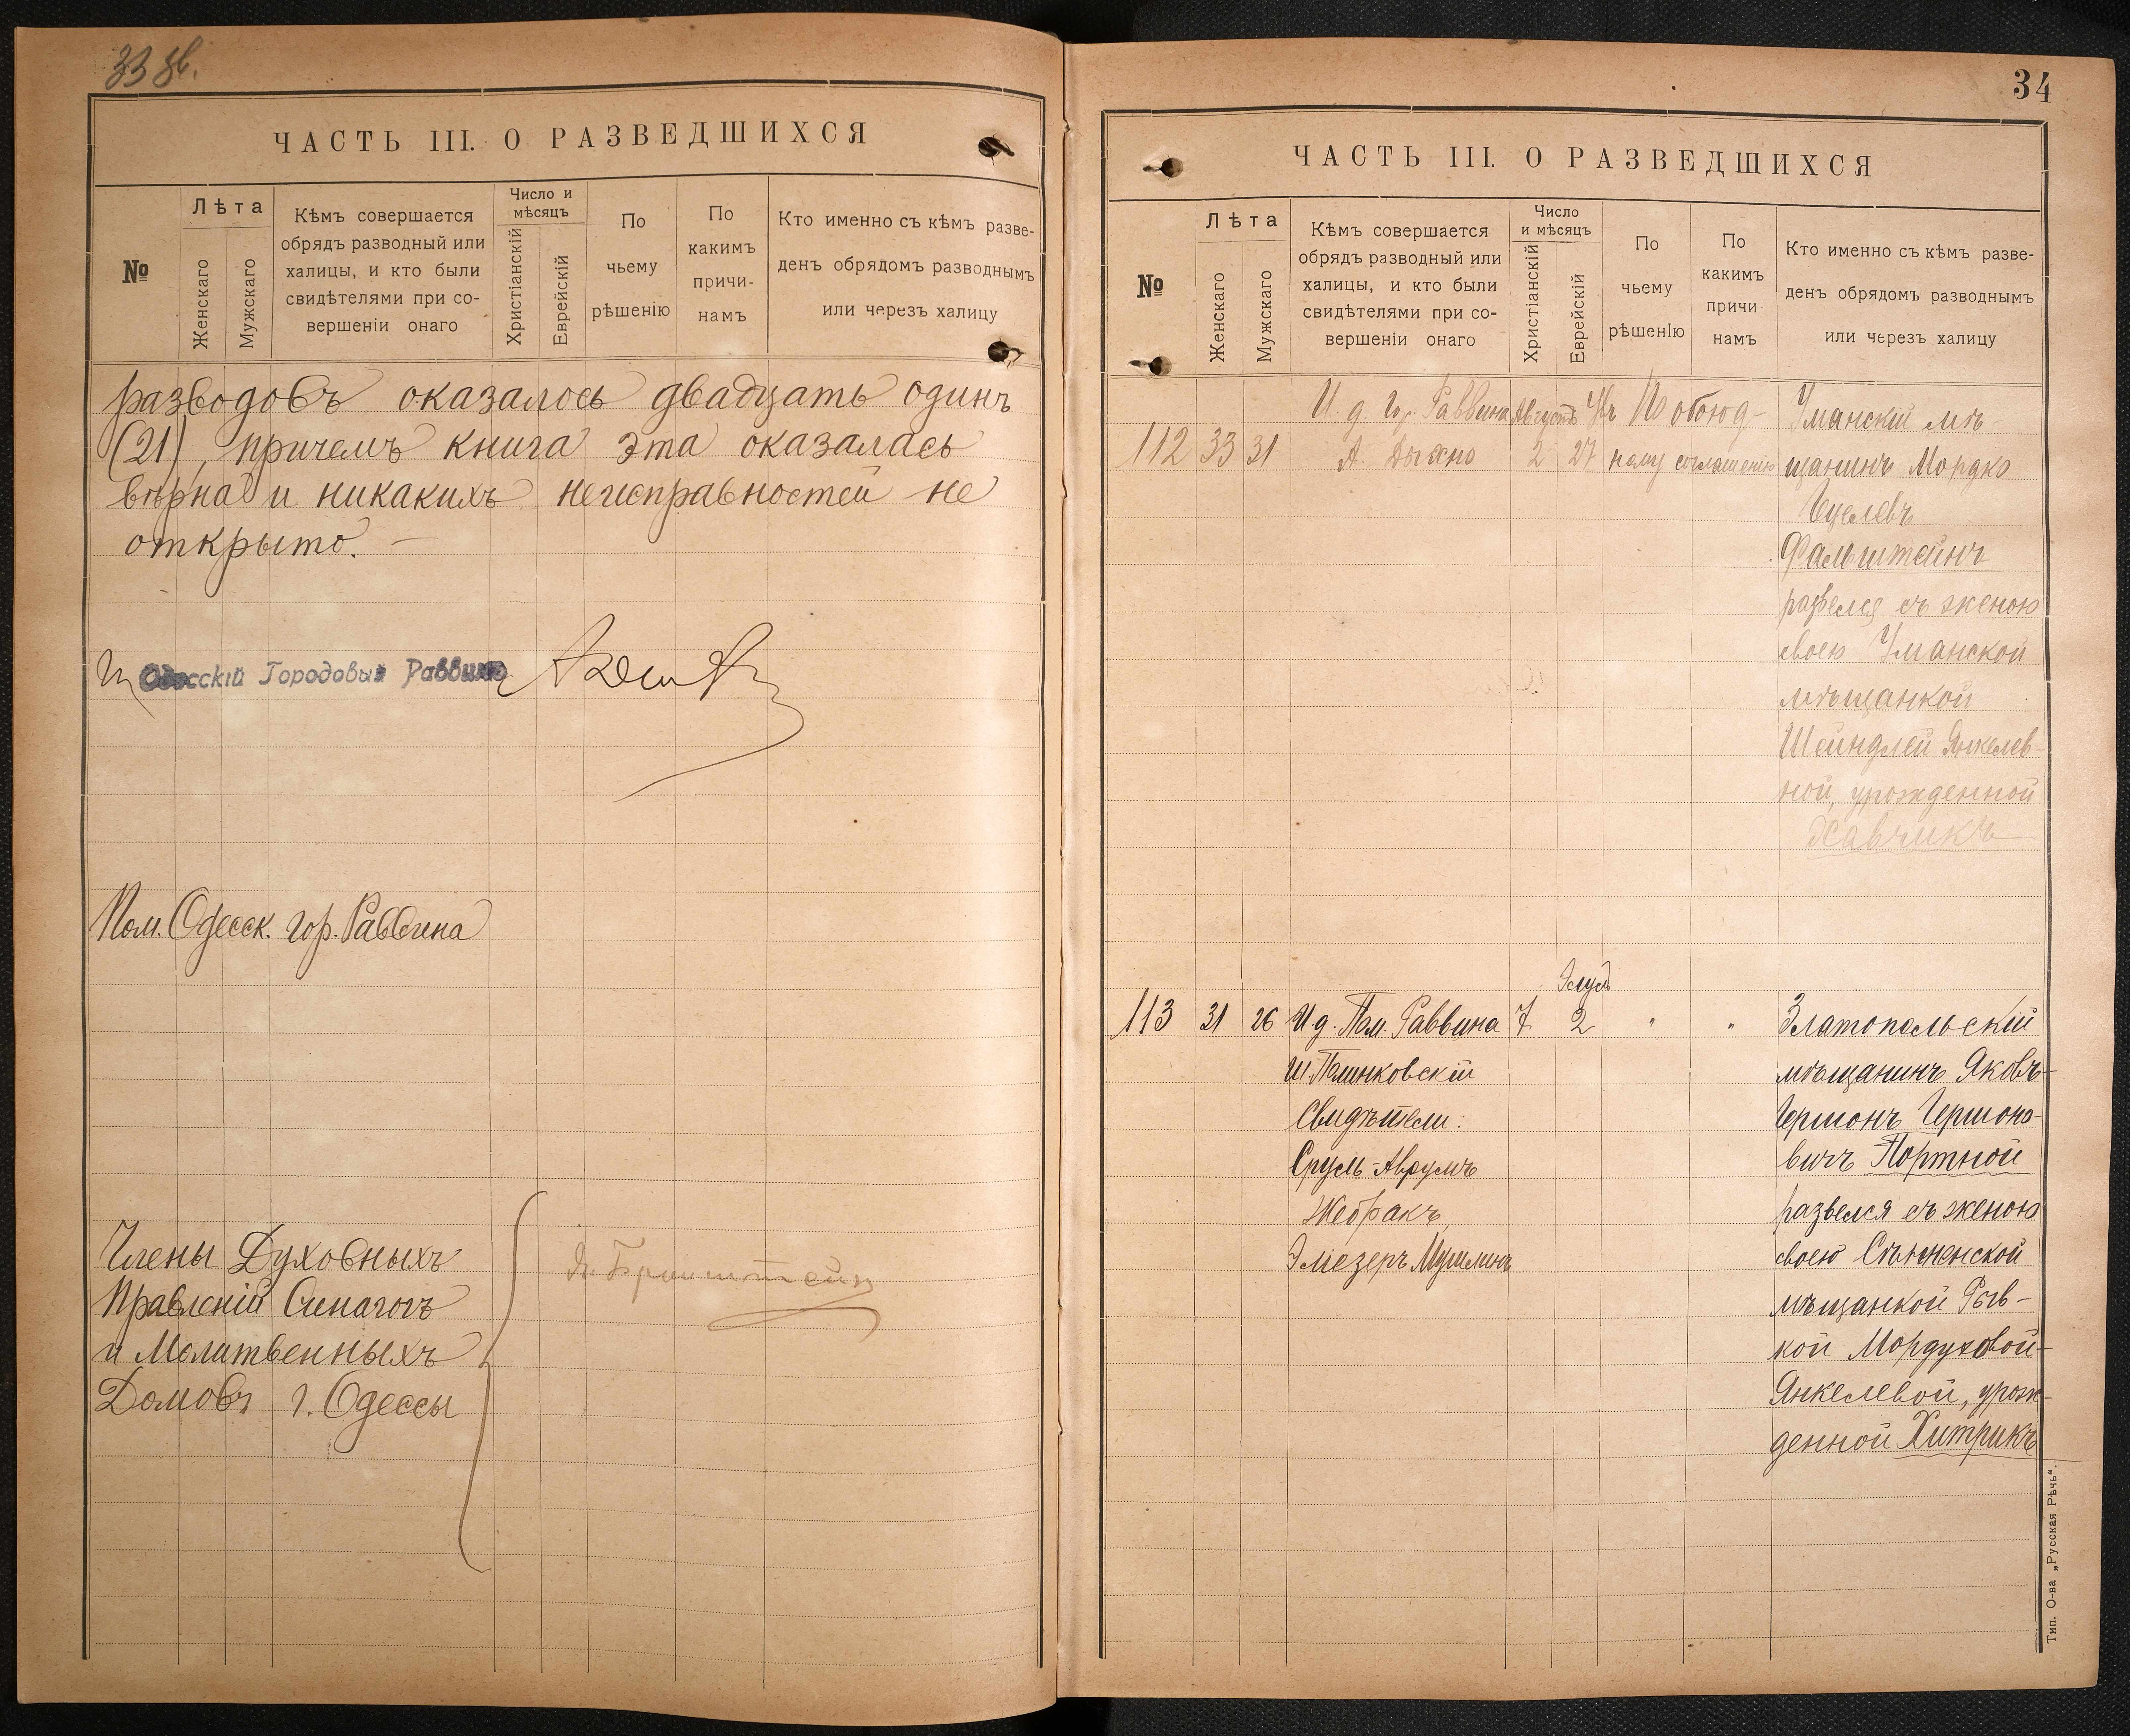 33 зв.
ЧАСТЬ III. О РАЗВЕДШИХСЯ
№
Лѣта
Женскаго
Мужскаго
Кѣмъ совершается
обрядъ разводный или
халицы, и кто были
свидѣтелями при со-
вершеніи онаго
Число и
мѣсяцъ
Христіанскій
Еврейскій
По
чьему
рѣшенію
По
какимъ
причи-
намъ
Кто именно съ кѣмъ разве-
денъ обрядомъ разводнымъ
или через халицу
разводовъ оказалось двадцать одинъ
(21), причемъ книга эта оказалась
вѣрна и никакихъ неисправностей не
открыто. —
Одесскій Городовый Раввинъ
Пом. Одесск. Гор. Раввина
Члены Духовныхъ
Правленій Синагогъ
и Молитвенныхъ
Домовъ г. Одессы
Бринштейн
34
ЧАСТЬ III. О РАЗВЕДШИХСЯ
№
Лѣта
Женскаго
Мужскаго
Кѣмъ совершается
обрядъ разводный или
халицы, и кто были
свидѣтелями при со-
вершеніи онаго
Число
и мѣсяцъ
Христіанскій
Еврейскій
По
чьему
рѣшенІю
По
какимъ
причи-
намъ
Кто именно съ кѣмъ разве-
денъ обрядомъ разводнымъ
или черезъ халицу
И. д. Гор. Раввина Августъ Авъ По обоюд- Уманскій мѣ-
112 33 31 А. Дыхно 2 27 ному соглашенію щанинъ Мордко
Іцелевъ
Фальштейнъ
развелся съ женою
своею Уманской
мѣщанкой
Шейндлей Янкелев-
ной, урожденной
Хавчикъ
Элулъ
113 31 26 И. д. Пом. Раввина 7 2 " " Златопольскій
Ш. Полинковскій мѣщанинъ Яковъ-
Свидѣтели: Гершонъ Гершоно-
Сруль-Аврумъ вичъ Портной
Жебракъ, развелся съ женою
Эліезеръ своею
мѣщанкой Рыв-
кой Мордуховой-
Янкелевой, урож-
денной Хитрикъ
Тип. О-ва „Русская Рѣчь“.